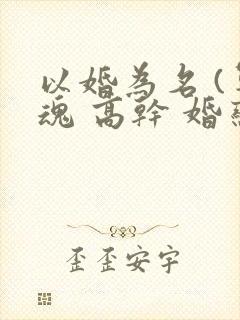 以婚為名(
魂 高幹 婚
歪歪安宇